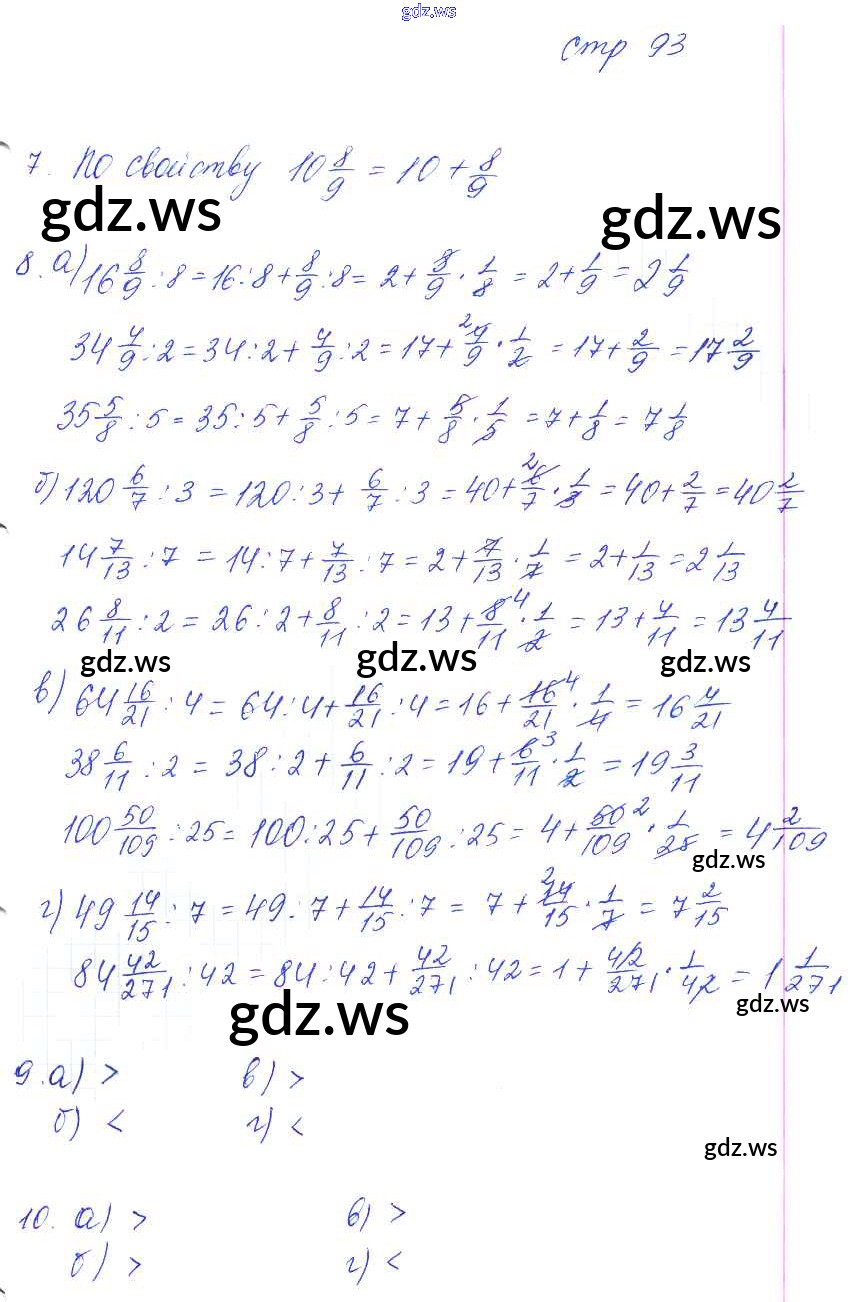 gdz.ws
стр 93
7. По свойству 10 8/9 = 10 + 8/9
gdz.ws gdz.ws
8. а) 16 8/9 : 8 = 16 : 8 + 8/9 : 8 = 2 + 8/9 · 1/8 = 2 + 1/9 = 2 1/9
34 4/9 : 2 = 34 : 2 + 4/9 : 2 = 17 + 4/9 · 1/2 = 17 + 2/9 = 17 2/9
35 5/8 : 5 = 35 : 5 + 5/8 : 5 = 7 + 5/8 · 1/5 = 7 + 1/8 = 7 1/8
б) 120 6/7 : 3 = 120 : 3 + 6/7 : 3 = 40 + 6/7 · 1/3 = 40 + 2/7 = 40 2/7
14 7/13 : 7 = 14 : 7 + 7/13 : 7 = 2 + 7/13 · 1/7 = 2 + 1/13 = 2 1/13
26 8/11 : 2 = 26 : 2 + 8/11 : 2 = 13 + 8/11 · 1/2 = 13 + 4/11 = 13 4/11
gdz.ws gdz.ws gdz.ws
в) 64 16/21 : 4 = 64 : 4 + 16/21 : 4 = 16 + 16/21 · 1/4 = 16 4/21
38 6/11 : 2 = 38 : 2 + 6/11 : 2 = 19 + 6/11 · 1/2 = 19 3/11
100 50/109 : 25 = 100 : 25 + 50/109 : 25 = 4 + 50/109 · 1/25 = 4 2/109
gdz.ws
г) 49 14/15 : 7 = 49 : 7 + 14/15 : 7 = 7 + 14/15 · 1/7 = 7 2/15
84 42/271 : 42 = 84 : 42 + 42/271 : 42 = 1 + 42/271 · 1/42 = 1 1/271
gdz.ws gdz.ws
9. а) > в) >
б) < г) <
gdz.ws
10. а) > в) >
б) > г) <